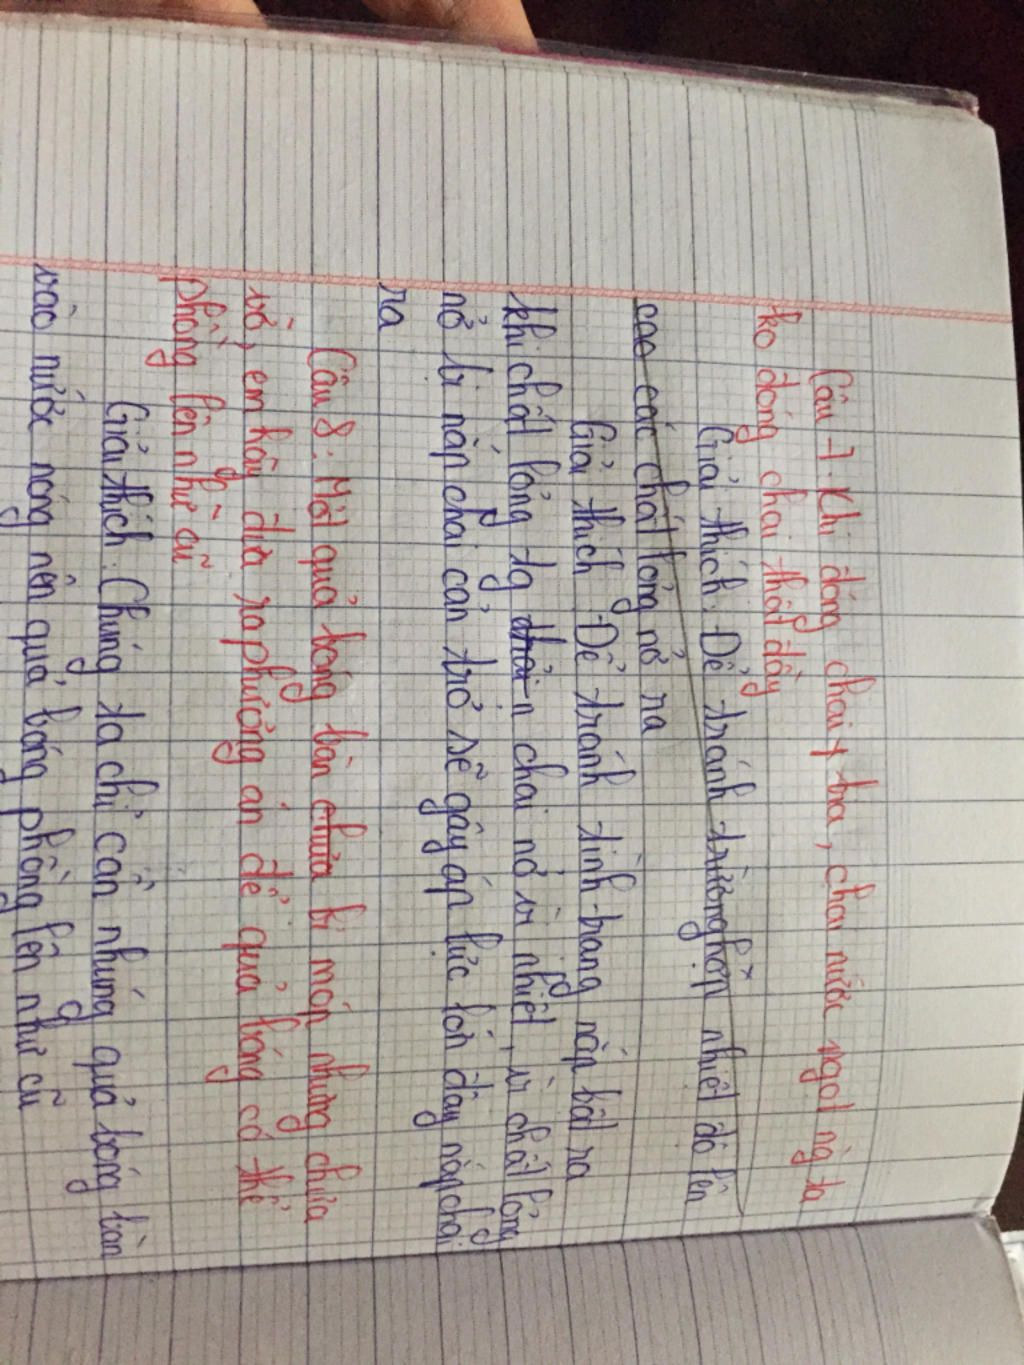 Câu 7. Khi đóng chai bia, chai nước ngọt ng ta
ko đóng chai thật đầy
Giải thích: Để tránh trường hợp nhiệt độ lên
cao các chất lỏng nở ra
Giải thích Để tránh tình trạng nắp bật ra
khi chất lỏng tg chai nở vì nhiệt, vì chất lỏng
nở bị nắp chai cản trở sẽ gây áp lực lớn đẩy nắp chai
ra
Câu 8: Một quả bóng bàn chưa bị móp nhưng chưa
vỡ, em hãy đưa ra phương án để quả bóng có thể
phồng lên như cũ
Giải thích: Chúng ta chỉ cần nhúng quả bóng bàn
vào nước nóng nên quả bóng phồng lên như cũ